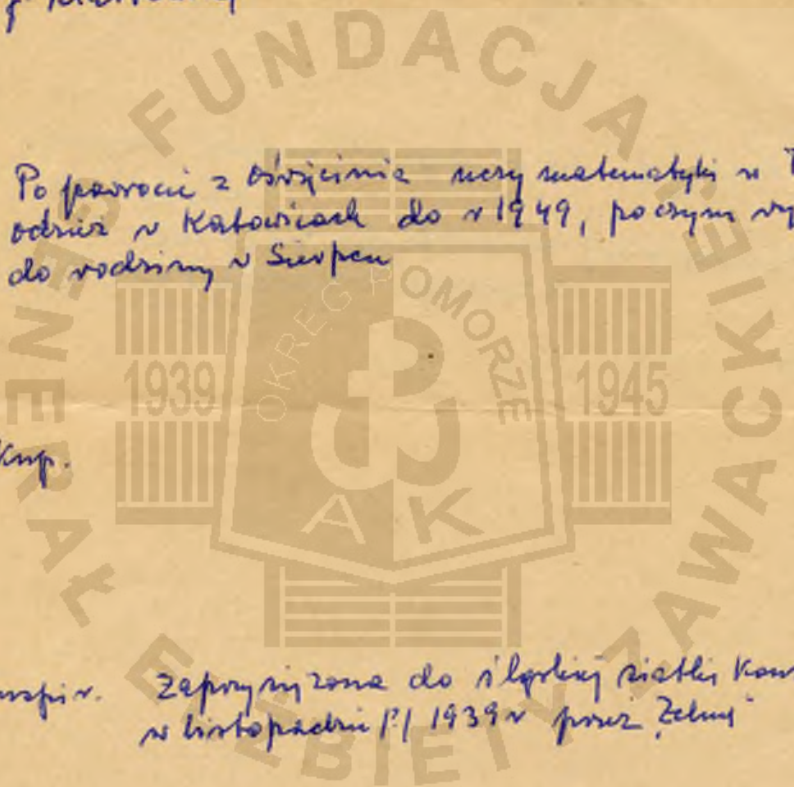 Po powrocie z Oświęcimia uczy matematyki w T
odzież w Katowicach do r 1949, poczym wy
do rodziny w Sierpcu
Okup.
Zaprzysiężona do śląskiej siatki Kon
w listopadzie /?/ 1939 r przez "Zelmę"
FUNDACJA GENERAŁ ELŻBIETY ZAWACKIEJ
OKRĘG POMORZE
1939
1945
AK